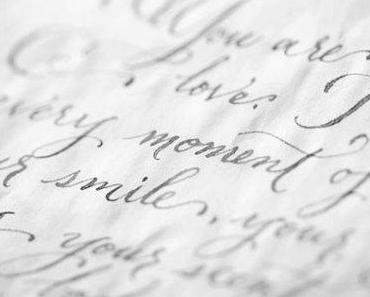 You are
love.
every moment of
smile, your
your